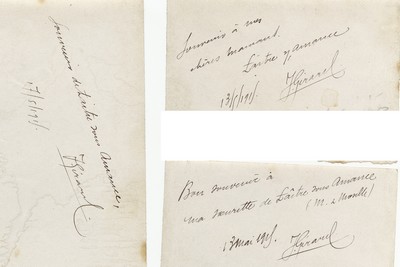 Souvenir de Laitre sous Amance,
17/5/1915
J Girard
Souvenir à mes
chères mamans
Laitre s/ Amance
13/5/1915
J Girard
Bon souvenir à
ma sœurette de Laître sous Amance
(M. & Moselle)
13 Mai 1915
J Girard